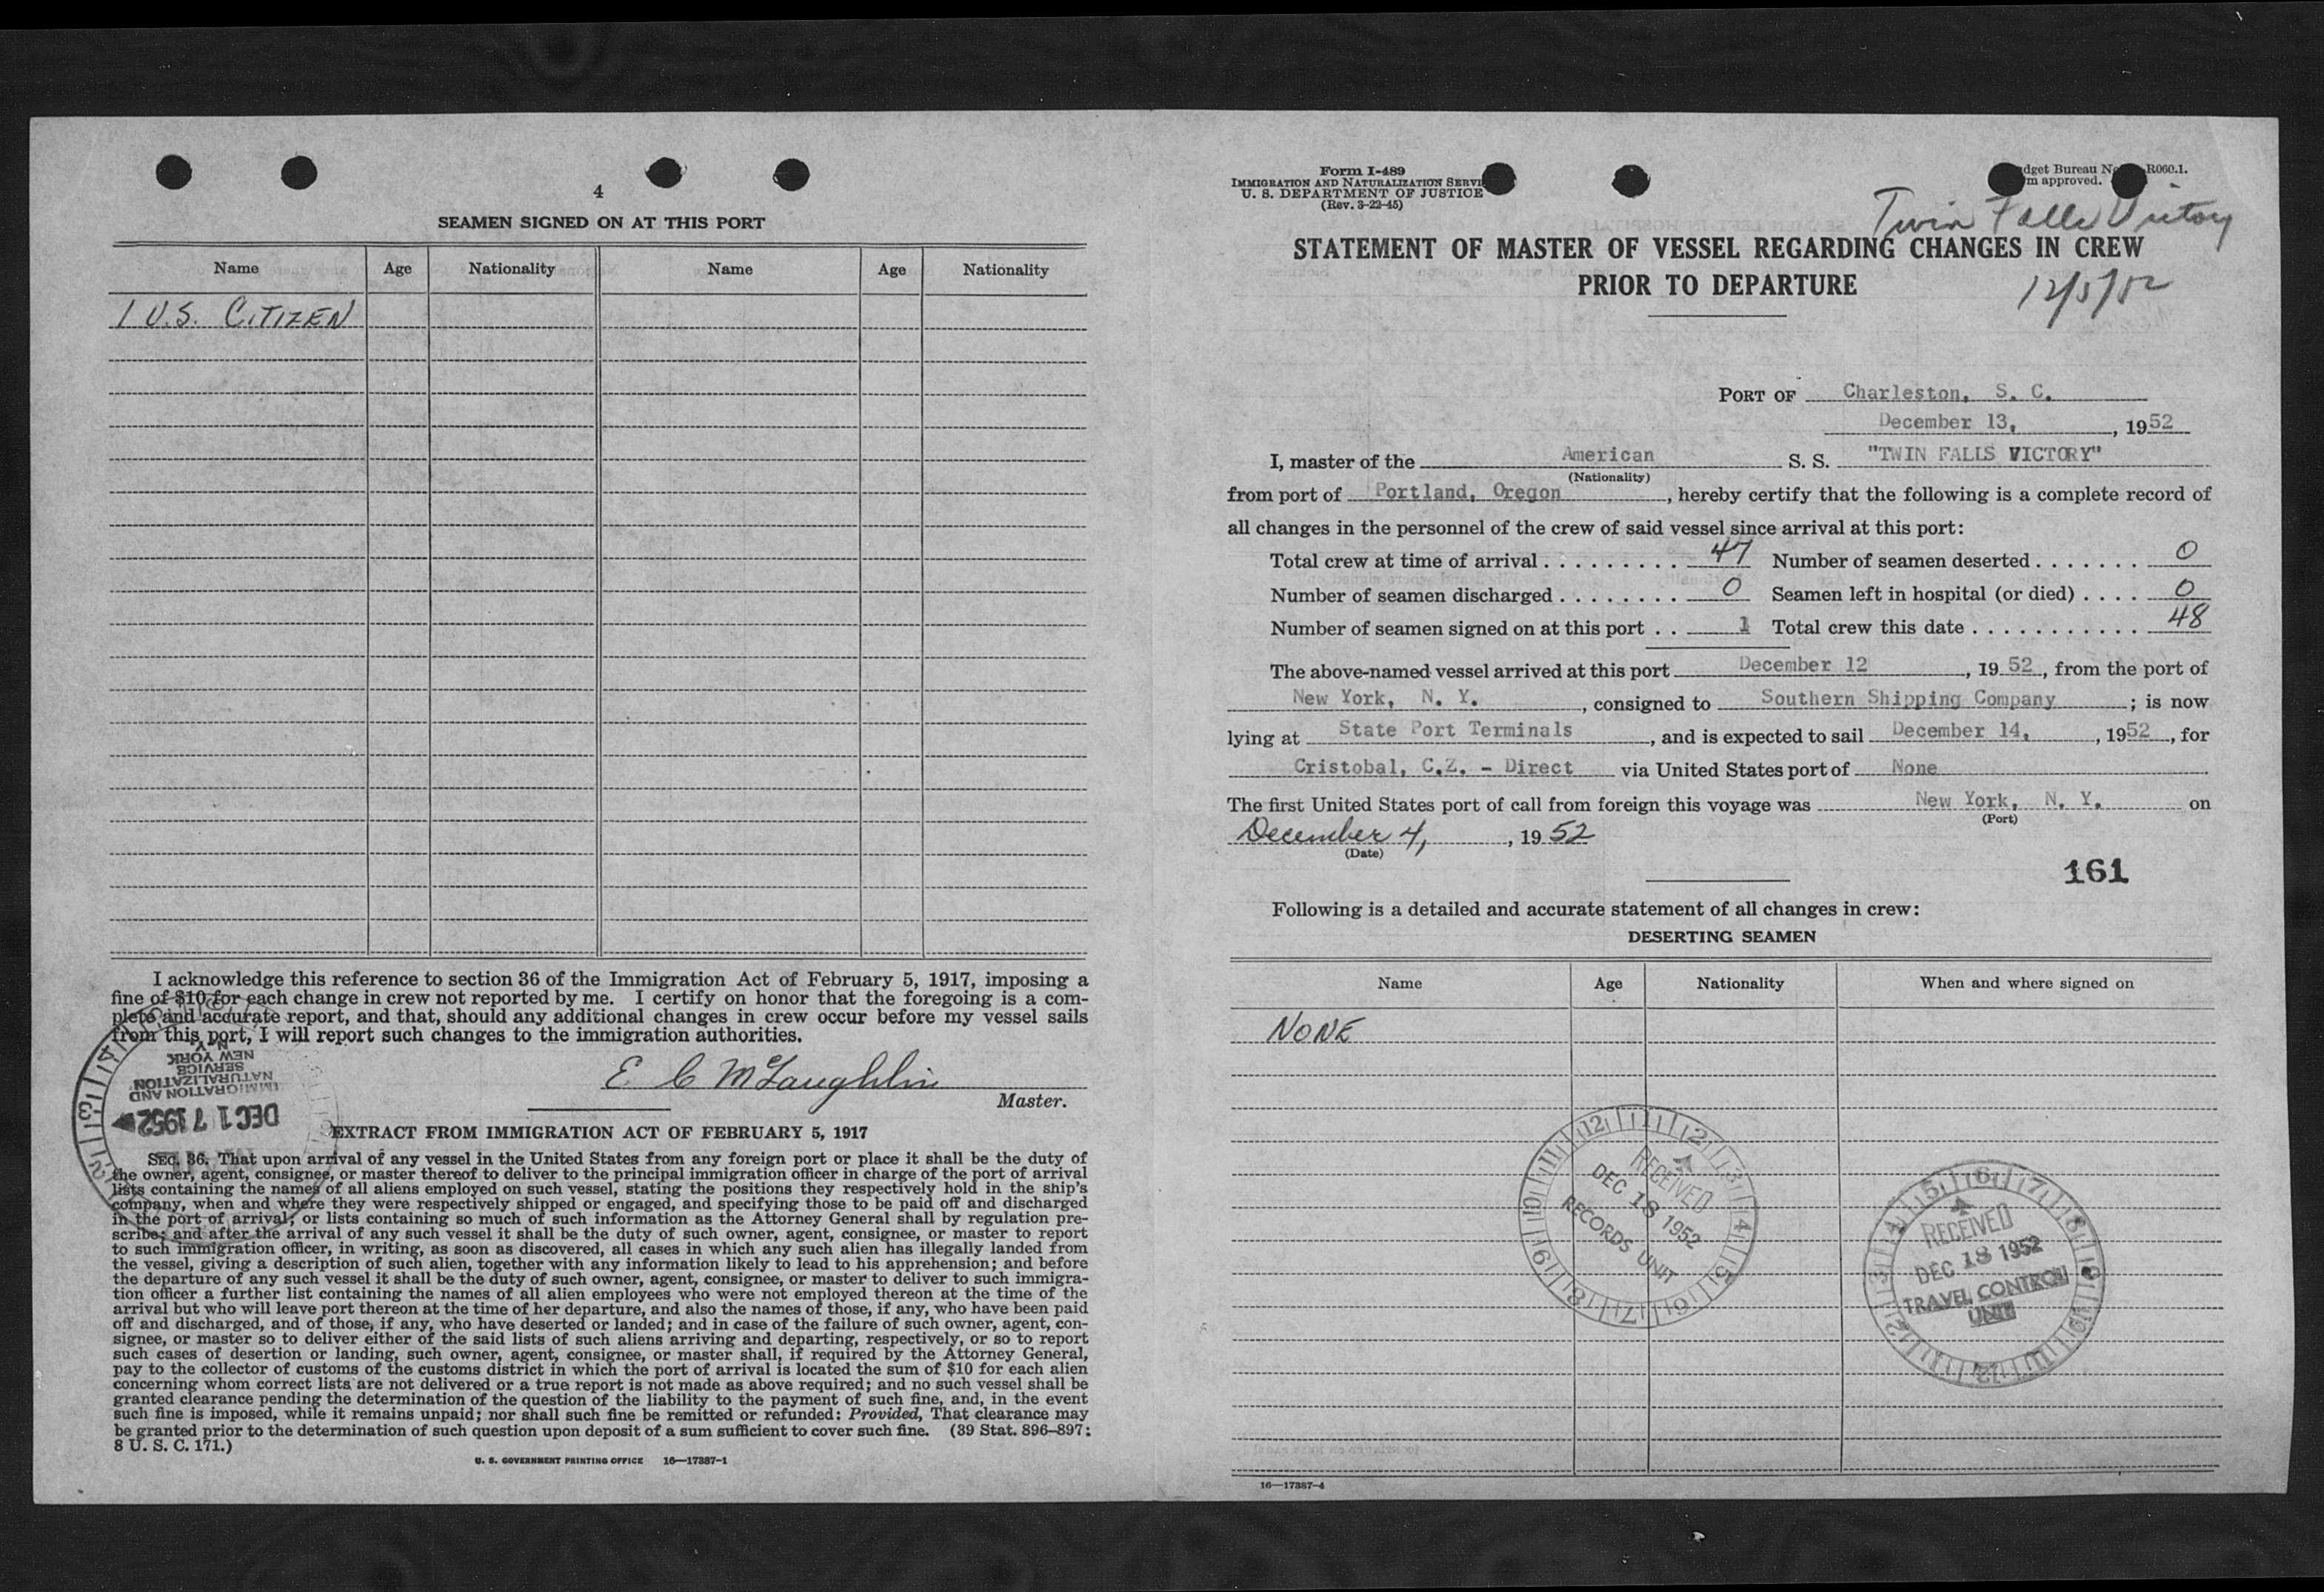 4
SEAMEN SIGNED ON AT THIS PORT
Name Age Nationality Name Age Nationality
1 U.S. CITIZEN
I acknowledge this reference to section 36 of the Immigration Act of February 5, 1917, imposing a
fine of $10 for each change in crew not reported by me. I certify on honor that the foregoing is a com-
plete and accurate report, and that, should any additional changes in crew occur before my vessel sails
from this port, I will report such changes to the immigration authorities.
N.Y.
NEW YORK
SERVICE
NATURALIZATION
IMMIGRATION AND
DEC 17 1952
E. C McLaughlin
Master.
EXTRACT FROM IMMIGRATION ACT OF FEBRUARY 5, 1917
SEC. 36. That upon arrival of any vessel in the United States from any foreign port or place it shall be the duty of
the owner, agent, consignee, or master thereof to deliver to the principal immigration officer in charge of the port of arrival
lists containing the names of all aliens employed on such vessel, stating the positions they respectively hold in the ship's
company, when and where they were respectively shipped or engaged, and specifying those to be paid off and discharged
in the port of arrival; or lists containing so much of such information as the Attorney General shall by regulation pre-
scribe; and after the arrival of any such vessel it shall be the duty of such owner, agent, consignee, or master to report
to such immigration officer, in writing, as soon as discovered, all cases in which any such alien has illegally landed from
the vessel, giving a description of such alien, together with any information likely to lead to his apprehension; and before
the departure of any such vessel it shall be the duty of such owner, agent, consignee, or master to deliver to such immigra-
tion officer a further list containing the names of all alien employees who were not employed thereon at the time of the
arrival but who will leave port thereon at the time of her departure, and also the names of those, if any, who have been paid
off and discharged, and of those, if any, who have deserted or landed; and in case of the failure of such owner, agent, con-
signee, or master so to deliver either of the said lists of such aliens arriving and departing, respectively, or so to report
such cases of desertion or landing, such owner, agent, consignee, or master shall, if required by the Attorney General,
pay to the collector of customs of the customs district in which the port of arrival is located the sum of $10 for each alien
concerning whom correct lists are not delivered or a true report is not made as above required; and no such vessel shall be
granted clearance pending the determination of the question of the liability to the payment of such fine, and, in the event
such fine is imposed, while it remains unpaid; nor shall such fine be remitted or refunded: Provided, That clearance may
be granted prior to the determination of such question upon deposit of a sum sufficient to cover such fine. (39 Stat. 896–897;
8 U. S. C. 171.)
U. S. GOVERNMENT PRINTING OFFICE 16—17387-1
Form I-489
IMMIGRATION AND NATURALIZATION SERVI
U. S. DEPARTMENT OF JUSTICE
(Rev. 3-22-45)
dget Bureau No R060.1.
m approved.
Twin Falls Victory
STATEMENT OF MASTER OF VESSEL REGARDING CHANGES IN CREW
PRIOR TO DEPARTURE
12/5/52
PORT OF Charleston, S. C.
December 13, , 1952
I, master of the American S. S. "TWIN FALLS VICTORY"
(Nationality)
from port of Portland, Oregon , hereby certify that the following is a complete record of
all changes in the personnel of the crew of said vessel since arrival at this port:
Total crew at time of arrival . . . . . . . . . 47 Number of seamen deserted . . . . . . . 0
Number of seamen discharged . . . . . . . . 0 Seamen left in hospital (or died) . . . . 0
Number of seamen signed on at this port . . 1 Total crew this date . . . . . . . . . . . . 48
The above-named vessel arrived at this port December 12 , 1952, from the port of
New York, N. Y. , consigned to Southern Shipping Company ; is now
lying at State Port Terminals , and is expected to sail December 14, , 1952, for
Cristobal, C.Z. - Direct via United States port of None
The first United States port of call from foreign this voyage was New York, N. Y. on
(Port)
December 4, , 1952
(Date)
161
Following is a detailed and accurate statement of all changes in crew:
DESERTING SEAMEN
Name Age Nationality When and where signed on
NONE
RECEIVED
DEC 18 1952
RECORDS UNIT
RECEIVED
DEC 18 1952
TRAVEL CONTROL
UNIT
16—17387-4